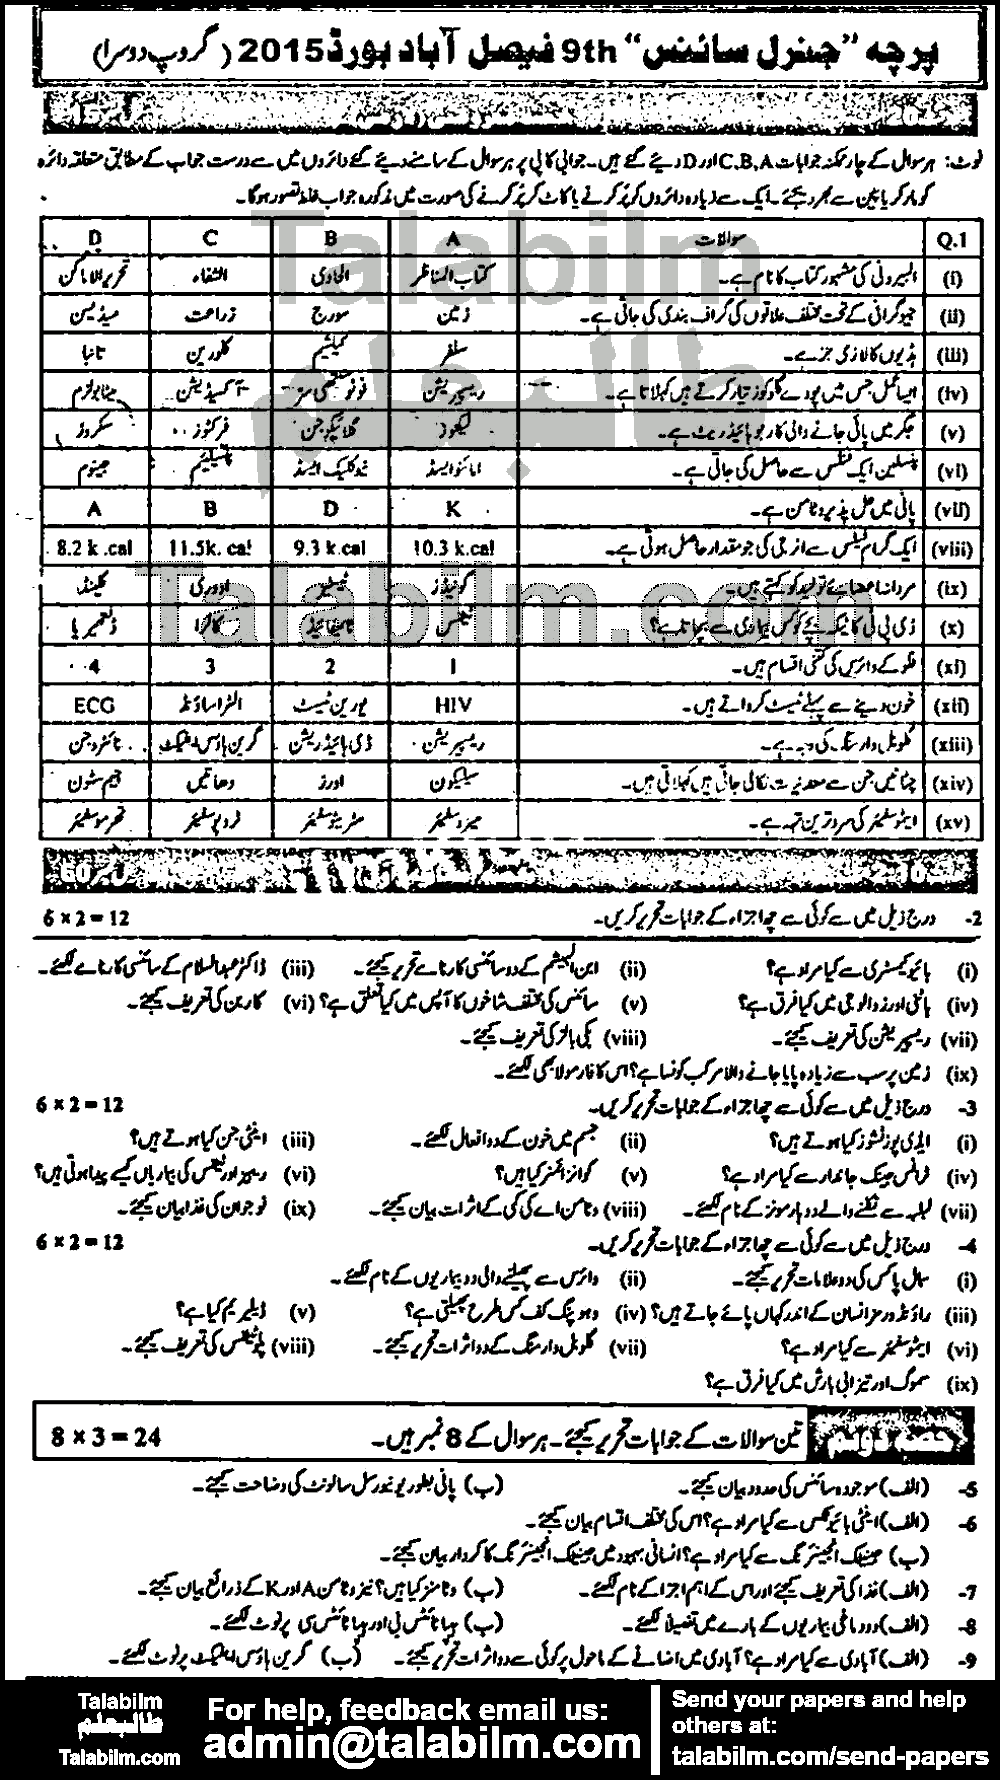 پرچہ "جنرل سائنس" 9th فیصل آباد بورڈ 2015 (گروپ دوسرا)
نوٹ: ہر سوال کے چار ممکنہ جوابات C.B.A اور D دیئے گئے ہیں۔ جوابی کاپی پر ہر سوال کے سامنے دیئے گئے دائروں میں سے درست جواب کے مطابق متعلقہ دائرہ
کو مارکر یا پین سے بھر دیجئے۔ ایک سے زیادہ دائروں کو پُر کرنے یا کاٹ کر پُر کرنے کی صورت میں مذکورہ جواب غلط تصور ہوگا۔
Q.1 سوالات A B C D
(i) البیرونی کی مشہور کتاب کا نام ہے۔ کتاب المناظر الحاوی الشفاء تحریر الاماکن
(ii) جیوگرافی کے تحت مختلف علاقوں کی گراف بندی کی جاتی ہے۔ زمین سورج زراعت میڈیسن
(iii) ہڈیوں کا لازمی جز ہے۔ سلفر کیلشیم کلورین تانبا
(iv) ایسا عمل جس میں پودے گلوکوز تیار کرتے ہیں کہلاتا ہے۔ ریسپریشن فوٹو سنتھی سز آکسیڈیشن میٹابولزم
(v) جگر میں پائی جانے والی کاربوہائیڈریٹ ہے۔ گلائیکوجن فرکٹوز سکروز
(vi) پنسلین ایک فنگس سے حاصل کی جاتی ہے۔ امائنو ایسڈ نیوکلیک ایسڈ پینسلیم جینوم
(vii) پانی میں حل پذیر وٹامن ہے۔ K D B A
(viii) ایک گرام فیٹس سے انرجی کی جو مقدار حاصل ہوتی ہے۔ 10.3 k.cal 9.3 k.cal 11.5k. cal 8.2 k.cal
(ix) مردانہ اعضائے تولید کو کہتے ہیں۔ گونیڈز ٹیسٹیز اووری گلینڈ
(x) ڈی پی ٹی کا ٹیکہ بچے کو کس بیماری سے بچاتا ہے؟ ٹیٹنس ٹائیفائیڈ کالرا
(xi) فلو کے وائرس کی کتنی اقسام ہیں۔ 1 2 3 4
(xii) خون دینے سے پہلے ٹیسٹ کرواتے ہیں۔ HIV یورین ٹیسٹ الٹراساؤنڈ ECG
(xiii) گلوبل وارمنگ کی وجہ ہے۔ ریسپریشن ڈی ہائیڈریشن گرین ہاؤس ایفیکٹ نائٹروجن
(xiv) چٹانیں جن سے معدنیات نکالی جاتی ہیں کہلاتی ہیں۔ سیلیکون اورز دھاتیں جیم سٹون
(xv) ایٹموسفیئر کی سرد ترین تہہ ہے۔ میزوسفیئر سٹریٹوسفیئر ٹروپوسفیئر تھرموسفیئر
2- درج ذیل میں سے کوئی سے چھ اجزاء کے جوابات تحریر کریں۔ 6 × 2 = 12
(i) بائیوکیمسٹری سے کیا مراد ہے؟ (ii) ابن الہیثم کے دو سائنسی کارنامے تحریر کیجئے۔ (iii) ڈاکٹر عبدالسلام کے سائنسی کارنامے لکھئے۔
(iv) باٹنی اور زوالوجی میں کیا فرق ہے؟ (v) سائنس کی مختلف شاخوں کا آپس میں کیا تعلق ہے؟ (vi) کاربن کی تعریف کیجئے۔
(vii) ریسپریشن کی تعریف کیجئے۔ (viii) بکی بالز کی تعریف کیجئے۔
(ix) زمین پر سب سے زیادہ پایا جانے والا مرکب کونسا ہے؟ اس کا فارمولا بھی لکھئے۔
3- درج ذیل میں سے کوئی سے چھ اجزاء کے جوابات تحریر کریں۔ 6 × 2 = 12
(i) ایڈی پوز ٹشوز کیا ہوتے ہیں؟ (ii) جسم میں خون کے دو افعال لکھئے۔ (iii) اینٹی جن کیا ہوتے ہیں؟
(iv) ٹرانس جینک جاندار سے کیا مراد ہے؟ (v) کوانزائمز کیا ہیں؟ (vi) ریبیز اور ٹیٹنس کی بیماریاں کیسے پیدا ہوتی ہیں؟
(vii) لبلبہ سے نکلنے والے دو ہارمونز کے نام لکھئے۔ (viii) وٹامن اے کی کمی کے اثرات بیان کیجئے۔ (ix) نوجوان کی غذا بیان کیجئے۔
4- درج ذیل میں سے کوئی سے چھ اجزاء کے جوابات تحریر کریں۔ 6 × 2 = 12
(i) سمال پاکس کی دو علامات تحریر کیجئے۔ (ii) وائرس سے پھیلنے والی دو بیماریوں کے نام لکھئے۔
(iii) راؤنڈ ورمز انسان کے اندر کہاں پائے جاتے ہیں؟ (iv) وہوپنگ کف کس طرح پھیلتی ہے؟ (v) ڈیلیریم کیا ہے؟
(vi) ایٹموسفیئر سے کیا مراد ہے؟ (vii) گلوبل وارمنگ کے دو اثرات تحریر کیجئے۔ (viii) پولیوٹنٹس کی تعریف کیجئے۔
(ix) سموگ اور تیزابی بارش میں کیا فرق ہے؟
حصہ دوئم تین سوالات کے جوابات تحریر کیجئے۔ ہر سوال کے 8 نمبر ہیں۔ 8 × 3 = 24
5- (الف) موجودہ سائنس کی حدود بیان کیجئے۔ (ب) پانی بطور یونیورسل سالونٹ کی وضاحت کیجئے۔
6- (الف) اینٹی بائیوٹکس سے کیا مراد ہے؟ اس کی مختلف اقسام بیان کیجئے۔
(ب) جینیٹک انجینئرنگ سے کیا مراد ہے؟ انسانی بہبود میں جینیٹک انجینئرنگ کا کردار بیان کیجئے۔
7- (الف) غذا کی تعریف کیجئے اور اس کے اہم اجزا کے نام لکھئے۔ (ب) وٹامنز کیا ہیں؟ نیز وٹامن A اور K کے ذرائع بیان کیجئے۔
8- (الف) دو دماغی بیماریوں کے بارے میں تفصیلاً لکھئے۔ (ب) ہیپاٹائٹس بی اور ہیپاٹائٹس سی پر نوٹ لکھئے۔
9- (الف) آبادی سے کیا مراد ہے؟ آبادی میں اضافے کے ماحول پر کوئی سے دو اثرات تحریر کیجئے۔ (ب) گرین ہاؤس ایفیکٹ پر نوٹ لکھئے۔
Talabilm
طالبعلم
Talabilm.com
Talabilm
طالبعلم
Talabilm.com
For help, feedback email us:
admin@talabilm.com
Send your papers and help
others at:
talabilm.com/send-papers